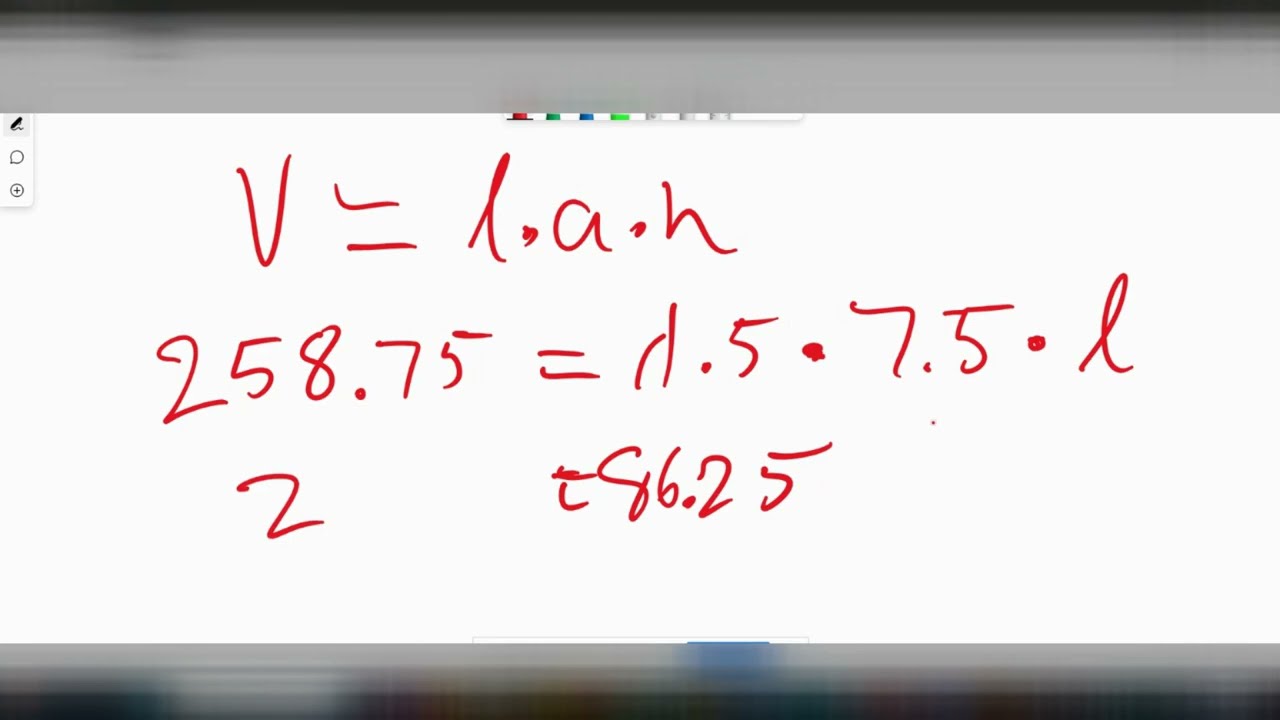 V = l·a·h
258.75 = 11.5 · 7.5 · l
2 =86.25